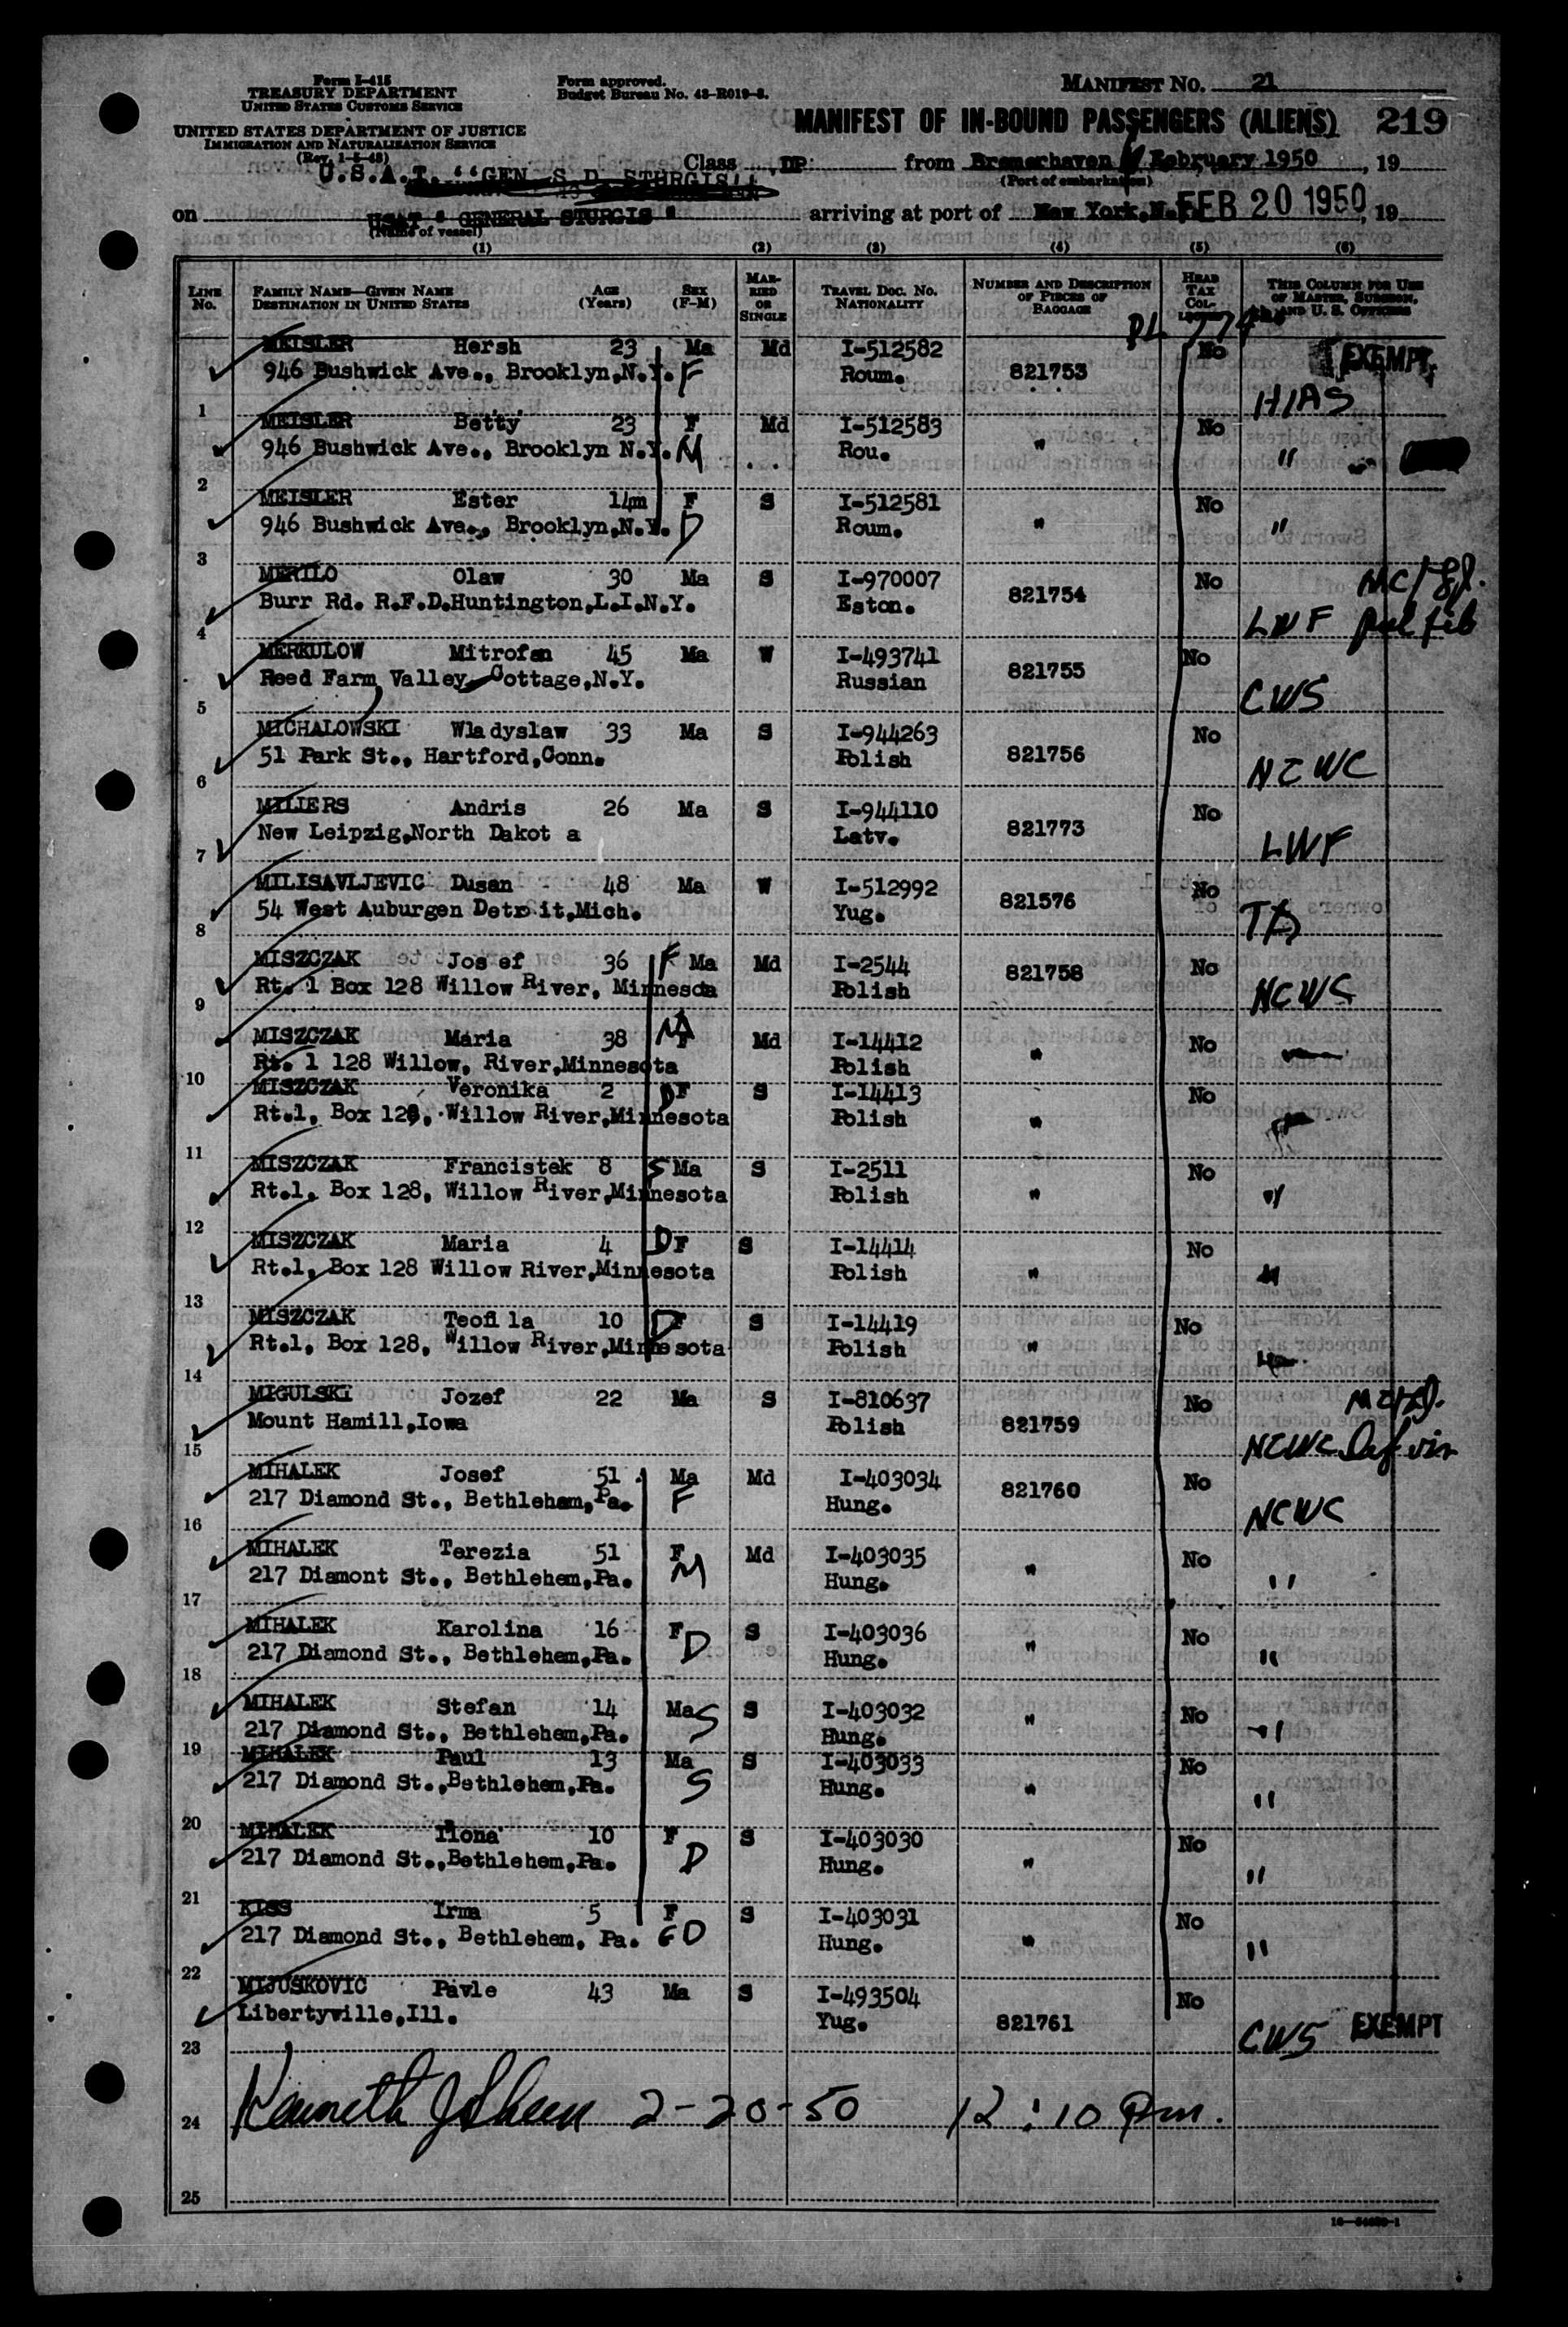 Form I-415
TREASURY DEPARTMENT
UNITED STATES CUSTOMS SERVICE
UNITED STATES DEPARTMENT OF JUSTICE
IMMIGRATION AND NATURALIZATION SERVICE
(Rev. 1-5-48)
Form approved.
Budget Bureau No. 43-R019-3.
MANIFEST NO. 21
MANIFEST OF IN-BOUND PASSENGERS (ALIENS) 219
U.S.A.T. "GEN S D STURGIS"
Class DP from Bremerhaven February 1950, 19
(Port of embarkation)
on USAT " GENERAL STURGIS " arriving at port of New York, N.Y. FEB 20 1950, 19
(Name of vessel)
(1) (2) (3) (4) (5) (6)
LINE No. FAMILY NAME—GIVEN NAME DESTINATION IN UNITED STATES AGE (Years) SEX (F-M) MARRIED OR SINGLE TRAVEL DOC. NO. NATIONALITY NUMBER AND DESCRIPTION OF PIECES OF BAGGAGE HEAD TAX COLLECTED THIS COLUMN FOR USE OF MASTER, SURGEON, AND U. S. OFFICERS
PL 774
MEISLER Hersh 23 Ma Md I-512582 No EXEMPT
946 Bushwick Ave., Brooklyn,N.Y. F Roum. 821753 HIAS
1
MEISLER Betty 23 F Md I-512583 No
946 Bushwick Ave., Brooklyn N.Y. M Rou. " "
2
MEISLER Ester 14m F S I-512581 No
946 Bushwick Ave., Brooklyn,N.Y. D Roum. " "
3
MERILO Olaw 30 Ma S I-970007 821754 No
Burr Rd. R.F.D.Huntington,L.I.N.Y. Eston. LWF
4
MERKULOW Mitrofan 45 Ma W I-493741 821755 No
Reed Farm, Valley Cottage,N.Y. Russian CWS
5
MICHALOWSKI Wladyslaw 33 Ma S I-944263 No
51 Park St., Hartford,Conn. Polish 821756 NCWC
6
MILIERS Andris 26 Ma S I-944110 No
New Leipzig,North Dakot a Latv. 821773 LWF
7
MILISAVLJEVIC Dusan 48 Ma W I-512992 No
54 West Auburgen Detroit,Mich. Yug. 821576
8
MISZCZAK Josef 36 F Ma Md I-2544 821758 No
Rt. 1 Box 128 Willow River, Minnesota Polish NCWC
9
MISZCZAK Maria 38 M F Md I-14412 No
Rt. 1 128 Willow, River,Minnesota Polish "
10
MISZCZAK Veronika 2 D F S I-14413 No
Rt.1, Box 128, Willow River,Minnesota Polish "
11
MISZCZAK Francistek 8 S Ma S I-2511 No
Rt.1, Box 128, Willow River,Minnesota Polish " "
12
MISZCZAK Maria 4 D F S I-14414 No
Rt.1, Box 128 Willow River,Minnesota Polish " "
13
MISZCZAK Teofila 10 D F S I-14419 No
Rt.1, Box 128, Willow River,Minnesota Polish "
14
MIGULSKI Jozef 22 Ma S I-810637 No
Mount Hamill,Iowa Polish 821759 NCWC
15
MIHALEK Josef 51 Ma Md I-403034 No
217 Diamond St., Bethlehem,Pa. F Hung. 821760 NCWC
16
MIHALEK Terezia 51 F Md I-403035 No
217 Diamont St., Bethlehem,Pa. M Hung. " "
17
MIHALEK Karolina 16 F S I-403036 No
217 Diamond St., Bethlehem,Pa. D Hung. " "
18
MIHALEK Stefan 14 Ma S S I-403032 No
217 Diamond St., Bethlehem,Pa. Hung. " "
19
MIHALEK Paul 13 Ma S I-403033 No
217 Diamond St.,Bethlehem,Pa. S Hung. " "
20
MIHALEK Ilona 10 F S I-403030 No
217 Diamond St.,Bethlehem,Pa. D Hung. " "
21
KISS Irma 5 F S I-403031 No
217 Diamond St., Bethlehem, Pa. GD Hung. " "
22
MIJUSKOVIC Pavle 43 Ma S I-493504 No
Libertyville,Ill. Yug. 821761 CWS EXEMPT
23
24 Kenneth 2-20-50 12:10 Pm.
25